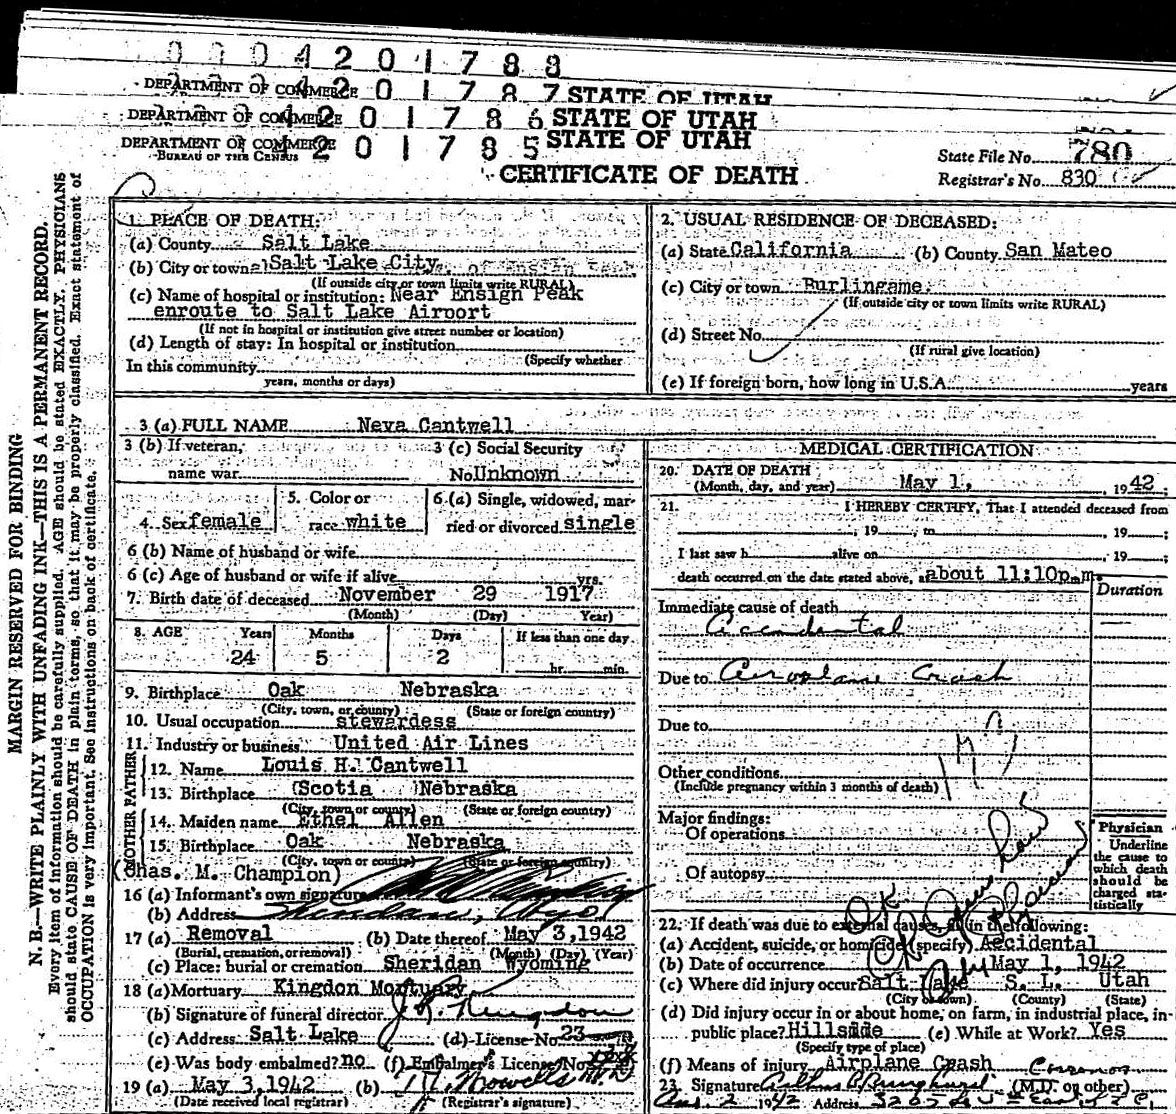 0 0 0 4 2 0 1 7 8 8
DEPARTMENT OF COMMERCE 4 2 0 1 7 8 7 STATE OF UTAH
DEPARTMENT OF COMMERCE 4 2 0 1 7 8 6 STATE OF UTAH
DEPARTMENT OF COMMERCE 4 2 0 1 7 8 5 STATE OF UTAH
BUREAU OF THE CENSUS
CERTIFICATE OF DEATH
State File No. 780
Registrar's No. 830
MARGIN RESERVED FOR BINDING
N. B.—WRITE PLAINLY WITH UNFADING INK—THIS IS A PERMANENT RECORD.
Every item of information should be carefully supplied. AGE should be stated EXACTLY. PHYSICIANS
should state CAUSE OF DEATH in plain terms, so that it may be properly classified. Exact statement of
OCCUPATION is very important. See instructions on back of certificate.
1. PLACE OF DEATH:
(a) County Salt Lake
(b) City or town Salt Lake City
(If outside city or town limits write RURAL)
(c) Name of hospital or institution: Near Ensign Peak
enroute to Salt Lake Airport
(If not in hospital or institution give street number or location)
(d) Length of stay: In hospital or institution
(Specify whether
In this community
years, months or days)
2. USUAL RESIDENCE OF DECEASED:
(a) State California (b) County San Mateo
(c) City or town Burlingame
(If outside city or town limits write RURAL)
(d) Street No.
(If rural give location)
(e) If foreign born, how long in U.S.A. years
3 (a) FULL NAME Neva Cantwell
3 (b) If veteran, 3 (c) Social Security
name war No. Unknown
4. Sex female 5. Color or race white 6. (a) Single, widowed, married or divorced single
6 (b) Name of husband or wife
6 (c) Age of husband or wife if alive yrs.
7. Birth date of deceased November 29 1917
(Month) (Day) Year)
8. AGE Years Months Days If less than one day
24 5 2 hr. min.
9. Birthplace Oak Nebraska
(City, town, or county) (State or foreign country)
10. Usual occupation stewardess
11. Industry or business United Air Lines
FATHER
12. Name Louis H. Cantwell
13. Birthplace Scotia Nebraska
(City, town or county) (State or foreign country)
MOTHER
14. Maiden name Ethel Allen
15. Birthplace Oak Nebraska
(City, town or county) (State or foreign country)
(Chas. M. Champion)
16 (a) Informant's own signature
(b) Address Sheridan, Wyo
17 (a) Removal (b) Date thereof May 3, 1942
(Burial, cremation, or removal) (Month) (Day) (Year)
(c) Place: burial or cremation Sheridan Wyoming
18 (a) Mortuary Kingdon Mortuary
(b) Signature of funeral director J. R. Kingdon
(c) Address Salt Lake (d) License No. 23
(e) Was body embalmed? no (f) Embalmer's License No. xxxx
19 (a) May 3, 1942 (b)
(Date received local registrar) (Registrar's signature)
MEDICAL CERTIFICATION
20. DATE OF DEATH
(Month, day, and year) May 1, 1942
21. I HEREBY CERTIFY, That I attended deceased from
, 19 , to , 19 ;
I last saw h alive on , 19 ;
death occurred on the date stated above, at about 11:10p.m.
Duration
Immediate cause of death
Accidental
Due to Aeroplane Crash
Due to
Other conditions
(Include pregnancy within 3 months of death)
Major findings:
Of operations
Of autopsy
Physician
Underline the cause to which death should be charged statistically
OK
22. If death was due to external causes, fill in the following:
(a) Accident, suicide, or homicide (specify) Accidental
(b) Date of occurrence May 1, 1942
(c) Where did injury occur? Salt Lake S. L. Utah
(City or town) (County) (State)
(d) Did injury occur in or about home, on farm, in industrial place, in public place? Hillside (e) While at Work? Yes
(Specify type of place)
(f) Means of injury Airplane Crash
23. Signature (M.D. or other)
1942 Address